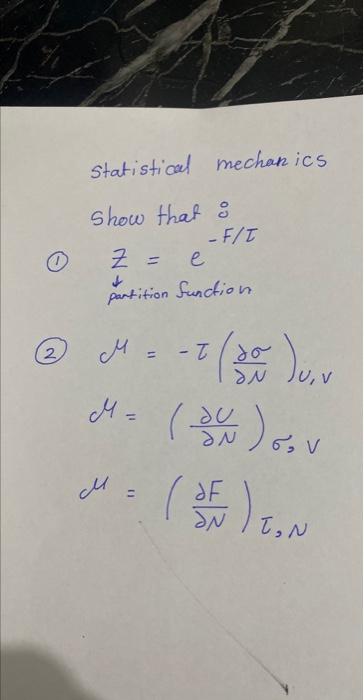 Statistical mechanics
Show that :
① Z = e^{-F/τ}
↓
partition function
② μ = -τ (∂σ/∂N)_{U,V}
μ = (∂U/∂N)_{σ,V}
μ = (∂F/∂N)_{τ,N}